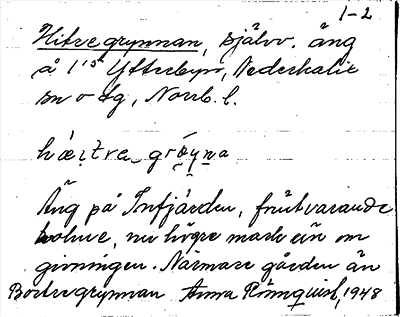 1-2
Hitregrynnan, självv. äng
å 1¹⁵ Ytterbyn, Nederkalix
sn o tg, Norrb. l.
hæitre grøyna
Äng på Infjärden, frutvarande
holme, nu högre mark än om
givningen. Närmare gården än
Bortregrynnan Anna Rönnquist, 1948